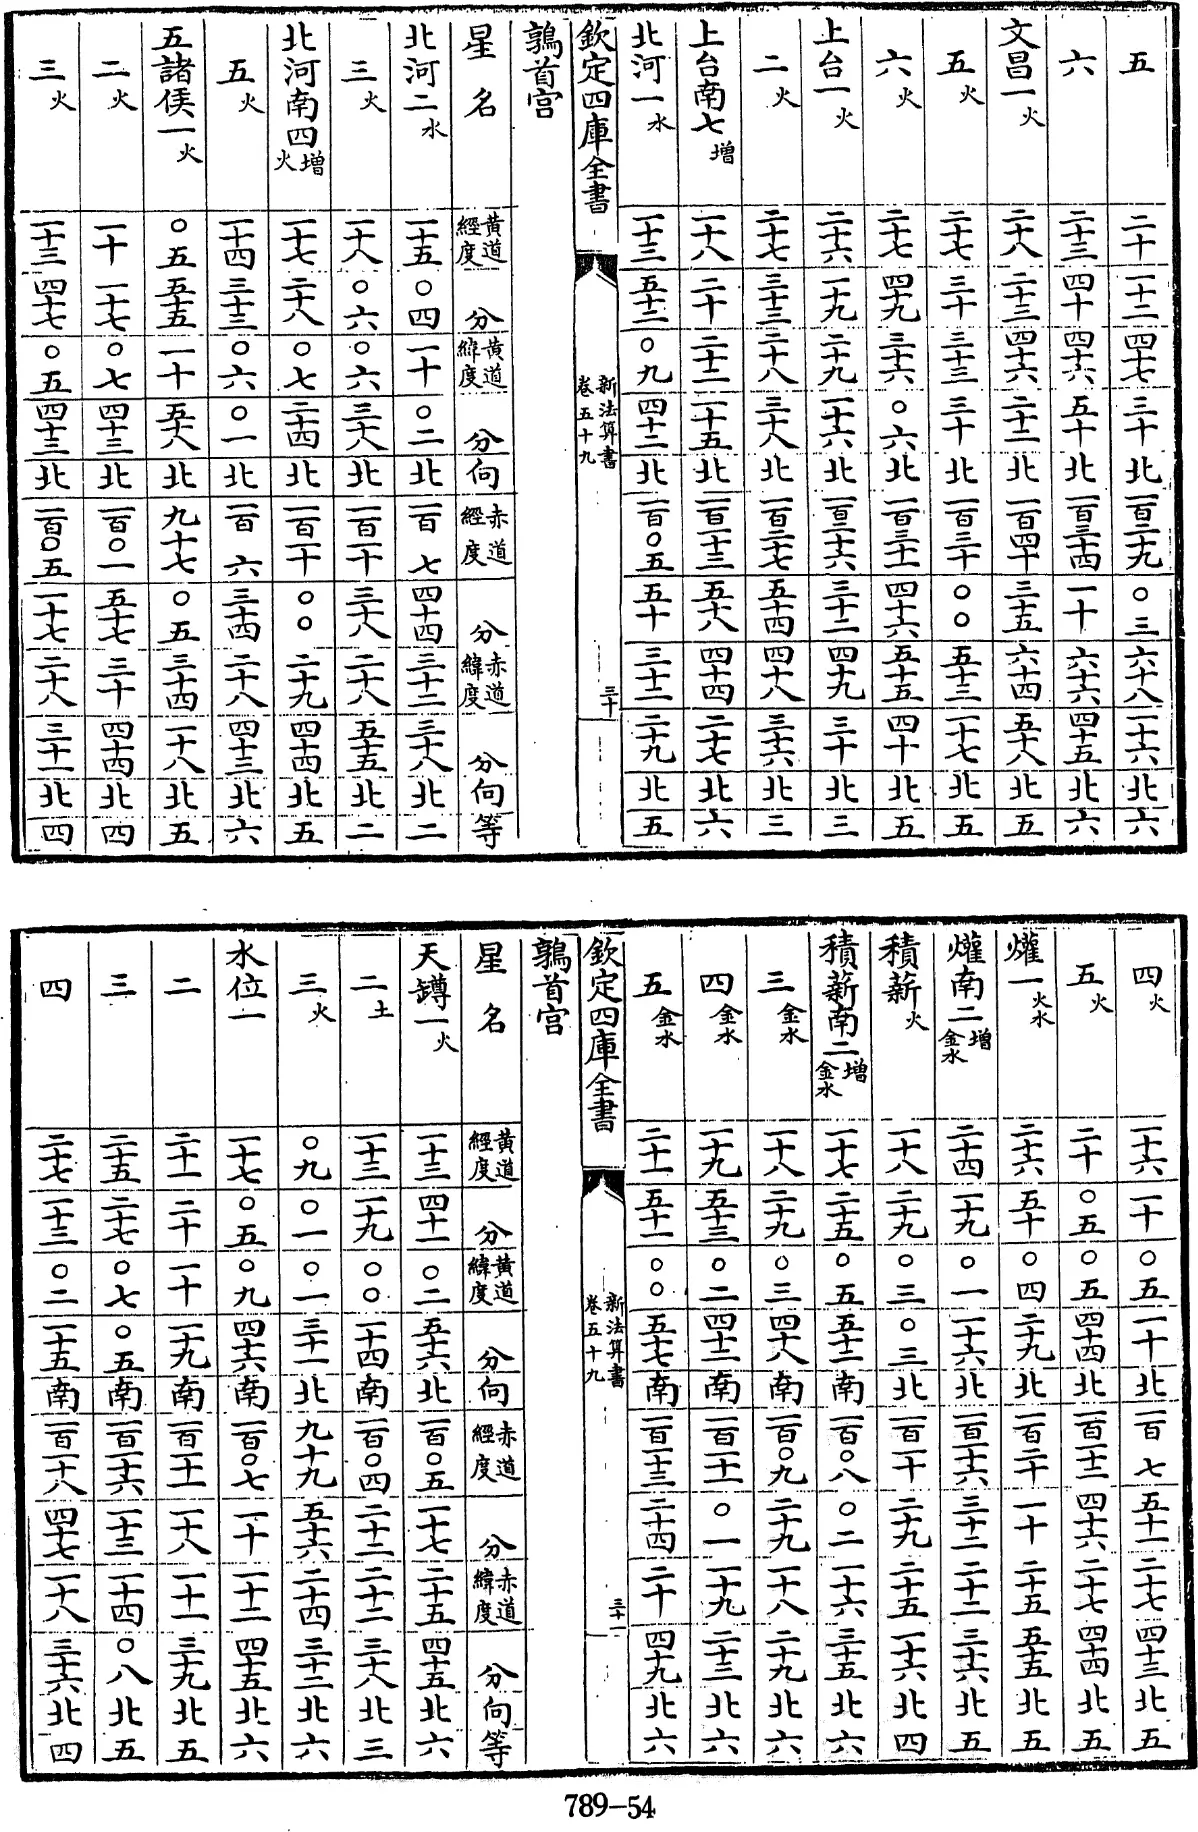 五 二十 一十二 四十七 三十 北 一百二十九 ○三 六十八 一十六 北 六
六 二十三 四十 四十六 五十 北 一百三十四 一十 六十六 四十五 北 六
文昌一火 二十八 二十三 四十六 二十二 北 一百四十 三十五 六十四 五十八 北 五
五火 二十七 三十 三十三 三十 北 一百三十 ○○ 五十三 一十七 北 五
六火 二十七 四十九 三十六 ○六 北 一百三十一 四十六 五十五 四十 北 五
上台一火 二十六 一十九 二十九 一十六 北 一百二十六 三十二 四十九 三十 北 三
二火 二十七 三十三 二十八 三十八 北 一百二十七 五十四 四十八 三十六 北 三
上台南七增 一十八 二十 二十二 一十五 北 一百一十三 五十八 四十四 二十七 北 六
北河一水 一十三 五十二 ○九 四十二 北 一百○五 五十 三十二 二十九 北 五
欽定四庫全書
新法算書
卷五十九
三十
鶉首宮
星名 黃道經度 分 黃道緯度 分 向 赤道經度 分 赤道緯度 分 向 等
北河二水 一十五 ○四 一十 ○二 北 一百七 四十四 三十二 三十八 北 二
三火 一十八 ○六 ○六 三十八 北 一百一十 三十八 二十八 五十五 北 二
北河南四增火 一十七 二十八 ○七 二十四 北 一百一十 ○○ 二十九 四十四 北 五
五火 一十四 三十三 ○六 ○一 北 一百六 三十四 二十八 四十三 北 六
五諸侯一火 ○五 五十五 一十 五十八 北 九十七 ○五 三十四 一十八 北 五
二火 一十 一十七 ○七 四十三 北 一百○一 五十七 三十 四十四 北 四
三火 一十三 四十七 ○五 四十三 北 一百○五 一十七 二十八 三十一 北 四
四火 一十六 一十 ○五 一十 北 一百七 五十一 二十七 四十三 北 五
五火 二十 ○五 ○五 四十四 北 一百一十二 四十六 二十七 四十四 北 五
爟一火水 二十六 五十 ○四 二十九 北 一百二十 一十 二十五 五十五 北 五
爟南二增金水 二十四 一十九 ○一 一十六 北 一百一十六 三十二 二十二 三十六 北 五
積薪火 一十八 二十九 ○三 ○三 北 一百一十 二十九 二十五 一十六 北 四
積薪南二增金水 一十七 二十五 ○五 五十二 南 一百○八 ○二 一十六 三十五 北 六
三金水 一十八 二十九 ○三 四十八 南 一百○九 二十九 一十八 二十九 北 六
四金水 一十九 五十三 ○二 四十二 南 一百一十一 ○一 一十九 二十三 北 六
五金水 二十一 五十一 ○○ 五十七 南 一百一十三 二十四 二十 四十九 北 六
欽定四庫全書
新法算書
卷五十九
三十一
鶉首宮
星名 黃道經度 分 黃道緯度 分 向 赤道經度 分 赤道緯度 分 向 等
天罇一火 一十三 四十一 ○二 五十六 北 一百○五 一十七 二十五 四十五 北 六
二土 一十三 一十九 ○○ 一十四 南 一百○四 二十二 二十二 三十八 北 三
三火 ○九 ○一 ○一 三十一 北 九十九 五十六 二十四 三十二 北 六
水位一 一十七 ○五 ○九 四十六 南 一百○七 一十 一十二 四十五 北 六
二 二十一 二十 一十 一十九 南 一百一十一 一十八 一十一 三十九 北 五
三 二十五 二十七 ○七 ○五 南 一百一十六 一十三 一十四 ○八 北 五
四 二十七 一十三 ○二 一十五 南 一百一十八 四十七 一十八 三十六 北 四
789-54